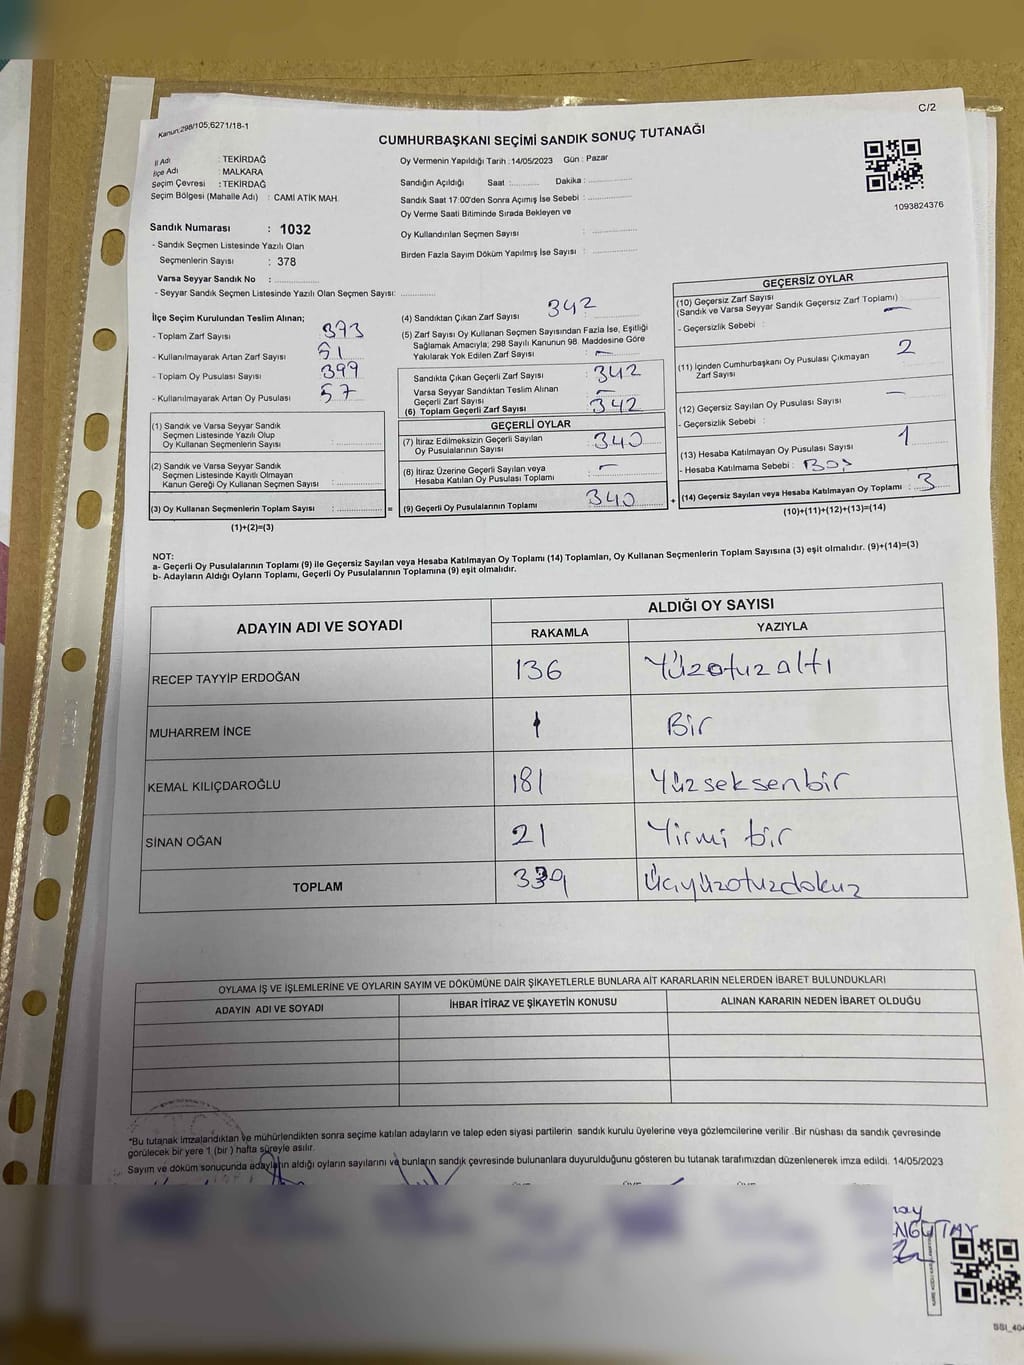 C/2
Kanun:298/105,6271/18-1
CUMHURBAŞKANI SEÇİMİ SANDIK SONUÇ TUTANAĞI
İl Adı : TEKİRDAĞ
İlçe Adı : MALKARA
Seçim Çevresi : TEKİRDAĞ
Seçim Bölgesi (Mahalle Adı) : CAMİ ATİK MAH.
Oy Vermenin Yapıldığı Tarih : 14/05/2023 Gün : Pazar
Sandığın Açıldığı Saat :.......... Dakika : ...............
Sandık Saat 17:00'den Sonra Açımış İse Sebebi : ...............
Oy Verme Saati Bitiminde Sırada Bekleyen ve
Oy Kullandırılan Seçmen Sayısı : ...............
Birden Fazla Sayım Döküm Yapılmış İse Sayısı : ...............
1093824376
Sandık Numarası : 1032
- Sandık Seçmen Listesinde Yazılı Olan
Seçmenlerin Sayısı : 378
Varsa Seyyar Sandık No : ...............
- Seyyar Sandık Seçmen Listesinde Yazılı Olan Seçmen Sayısı: ............
İlçe Seçim Kurulundan Teslim Alınan;
- Toplam Zarf Sayısı : 393
- Kullanılmayarak Artan Zarf Sayısı : 51
- Toplam Oy Pusulası Sayısı : 399
- Kullanılmayarak Artan Oy Pusulası : 57
(1) Sandık ve Varsa Seyyar Sandık
Seçmen Listesinde Yazılı Olup
Oy Kullanan Seçmenlerin Sayısı : ...............
(2) Sandık ve Varsa Seyyar Sandık
Seçmen Listesinde Kayıtlı Olmayan
Kanun Gereği Oy Kullanan Seçmen Sayısı : ...............
(3) Oy Kullanan Seçmenlerin Toplam Sayısı : ............... =
(1)+(2)=(3)
(4) Sandıktan Çıkan Zarf Sayısı : 342
(5) Zarf Sayısı Oy Kullanan Seçmen Sayısından Fazla İse, Eşitliği
Sağlamak Amacıyla; 298 Sayılı Kanunun 98. Maddesine Göre
Yakılarak Yok Edilen Zarf Sayısı : —
Sandıkta Çıkan Geçerli Zarf Sayısı : 342
Varsa Seyyar Sandıktan Teslim Alınan
Geçerli Zarf Sayısı : —
(6) Toplam Geçerli Zarf Sayısı : 342
GEÇERLİ OYLAR
(7) İtiraz Edilmeksizin Geçerli Sayılan
Oy Pusulalarının Sayısı : 340
(8) İtiraz Üzerine Geçerli Sayılan veya
Hesaba Katılan Oy Pusulası Toplamı : —
(9) Geçerli Oy Pusulalarının Toplamı : 340 +
GEÇERSİZ OYLAR
(10) Geçersiz Zarf Sayısı
(Sandık ve Varsa Seyyar Sandık Geçersiz Zarf Toplamı) —
- Geçersizlik Sebebi :
(11) İçinden Cumhurbaşkanı Oy Pusulası Çıkmayan
Zarf Sayısı 2
(12) Geçersiz Sayılan Oy Pusulası Sayısı —
- Geçersizlik Sebebi :
(13) Hesaba Katılmayan Oy Pusulası Sayısı 1
- Hesaba Katılmama Sebebi : Boş
(14) Geçersiz Sayılan veya Hesaba Katılmayan Oy Toplamı : 3
(10)+(11)+(12)+(13)=(14)
NOT:
a- Geçerli Oy Pusulalarının Toplamı (9) ile Geçersiz Sayılan veya Hesaba Katılmayan Oy Toplamı (14) Toplamları, Oy Kullanan Seçmenlerin Toplam Sayısına (3) eşit olmalıdır. (9)+(14)=(3)
b- Adayların Aldığı Oyların Toplamı, Geçerli Oy Pusulalarının Toplamına (9) eşit olmalıdır.
ADAYIN ADI VE SOYADI ALDIĞI OY SAYISI
RAKAMLA YAZIYLA
RECEP TAYYİP ERDOĞAN 136 Yüzotuzaltı
MUHARREM İNCE 1 Bir
KEMAL KILIÇDAROĞLU 181 Yüzseksenbir
SİNAN OĞAN 21 Yirmi bir
TOPLAM 339 Üçyüzotuzdokuz
OYLAMA İŞ VE İŞLEMLERİNE VE OYLARIN SAYIM VE DÖKÜMÜNE DAİR ŞİKAYETLERLE BUNLARA AİT KARARLARIN NELERDEN İBARET BULUNDUKLARI
ADAYIN ADI VE SOYADI İHBAR İTİRAZ VE ŞİKAYETİN KONUSU ALINAN KARARIN NEDEN İBARET OLDUĞU
*Bu tutanak imzalandıktan ve mühürlendikten sonra seçime katılan adayların ve talep eden siyasi partilerin sandık kurulu üyelerine veya gözlemcilerine verilir .Bir nüshası da sandık çevresinde
görülecek bir yere 1 (bir ) hafta süreyle asılır.
Sayım ve döküm sonucunda adayların aldığı oyların sayılarını ve bunların sandık çevresinde bulunanlara duyurulduğunu gösteren bu tutanak tarafımızdan düzenlenerek imza edildi. 14/05/2023